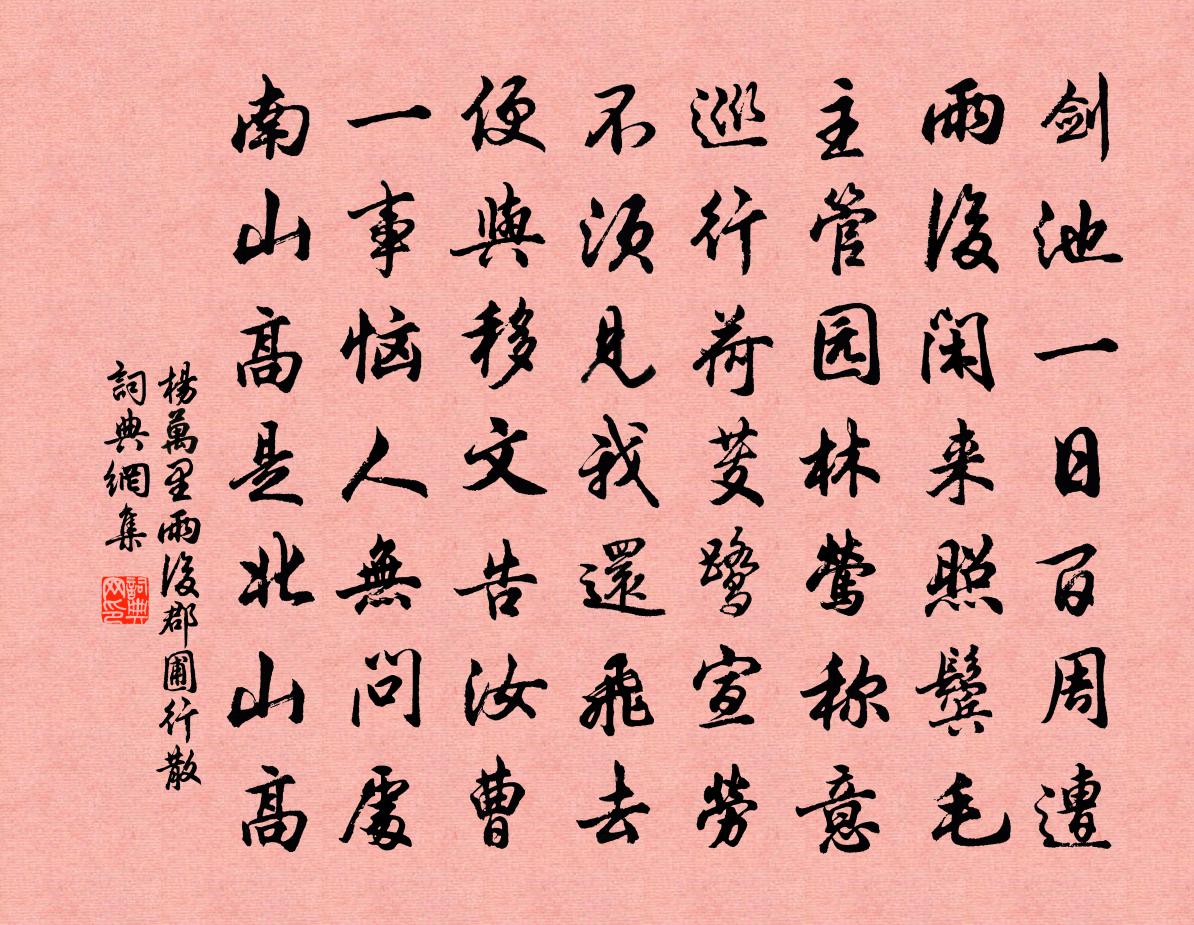 剑池一日百周遭
雨後闲来照鬓毛
主管园林莺称意
巡行荷芰鹭宣劳
不须见我還飛去
便與移文告汝曹
一事恼人無问處
南山高是北山高
楊萬里雨後郡圃行散
詞典網集
詞典网印